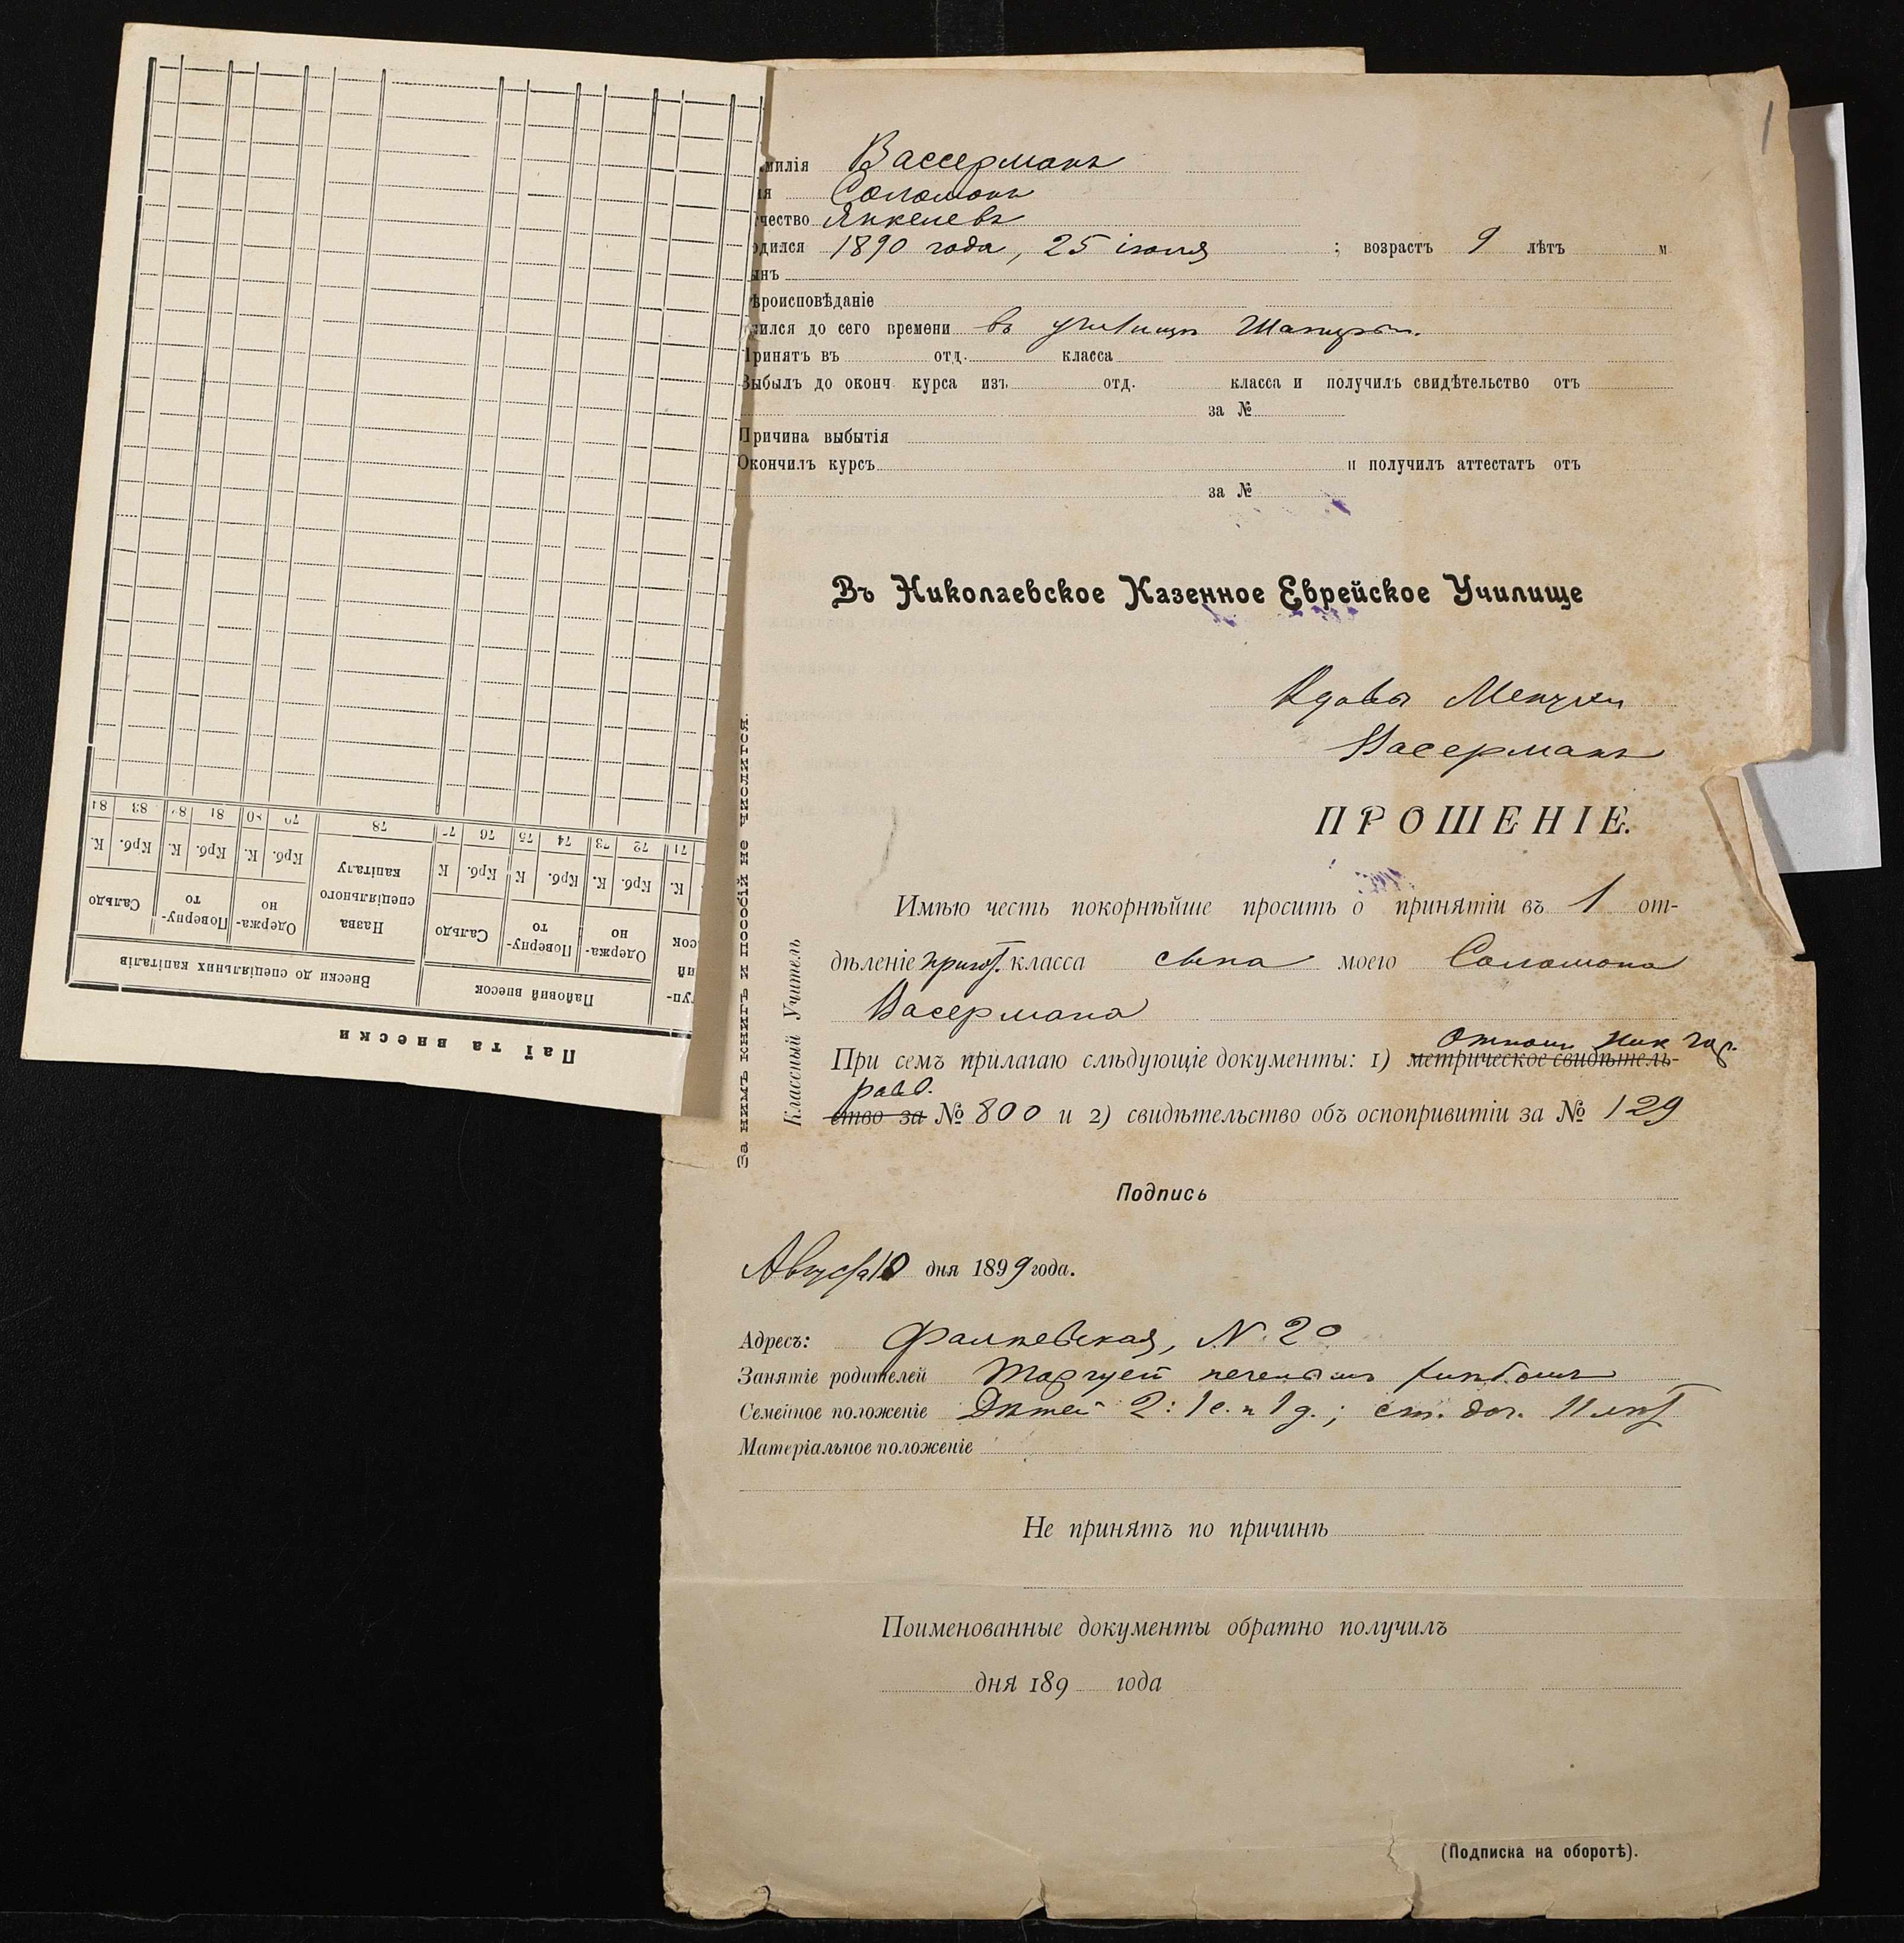 милія Вассерманъ
ія Соломонъ
чество Янкелевъ
одился 1890 года, 25 іюля ; возрастъ 9 лѣтъ м
ынъ
ѣроисповѣданіе
чился до сего времени въ училищѣ
Принятъ въ отд. класса
Выбылъ до оконч. курса изъ отд. класса и получилъ свидѣтельство отъ
за №
Причина выбытія
Окончилъ курсъ и получилъ аттестатъ отъ
за №
Въ Николаевское Казенное Еврейское Училище
Вдовы
Васерманъ
ПРОШЕНІЕ.
Имѣю честь покорнѣйше просить о принятіи въ 1 от-
дѣленіе пригот. класса сына моего Соломона
Васермана
Отнош. Ник. гор.
При семъ прилагаю слѣдующіе документы: 1) метрическое свидѣтель-
равв.
ство за № 800 и 2) свидѣтельство объ оспопривитіи за № 129
Подпись
Августа 10 дня 1899 года.
Адресъ: Фалѣевская, N. 20
Занятіе родителей Торгует печенымъ хлѣбомъ
Семейное положеніе Дѣтей 2: 1 с. и 1 д.; ст. доч. 11 лѣт
Матеріальное положеніе
Не принятъ по причинѣ
Поименованные документы обратно получилъ
дня 189 года
(Подписка на оборотѣ).
За нимъ книгъ и пособій не числится.
Классный Учитель
Паї та внески
Пайовий внесок
Внески до спеціяльних капіталів
Одержа-
но
Поверну-
то
Сальдо
Назва
спеціяльного
капіталу
Одержа-
но
Поверну-
то
Сальдо
К. Крб. К. Крб. К Крб. К Крб. К. Крб. К. Крб. К.
71 72 73 74 75 76 77 78 79 80 81 82 83 84